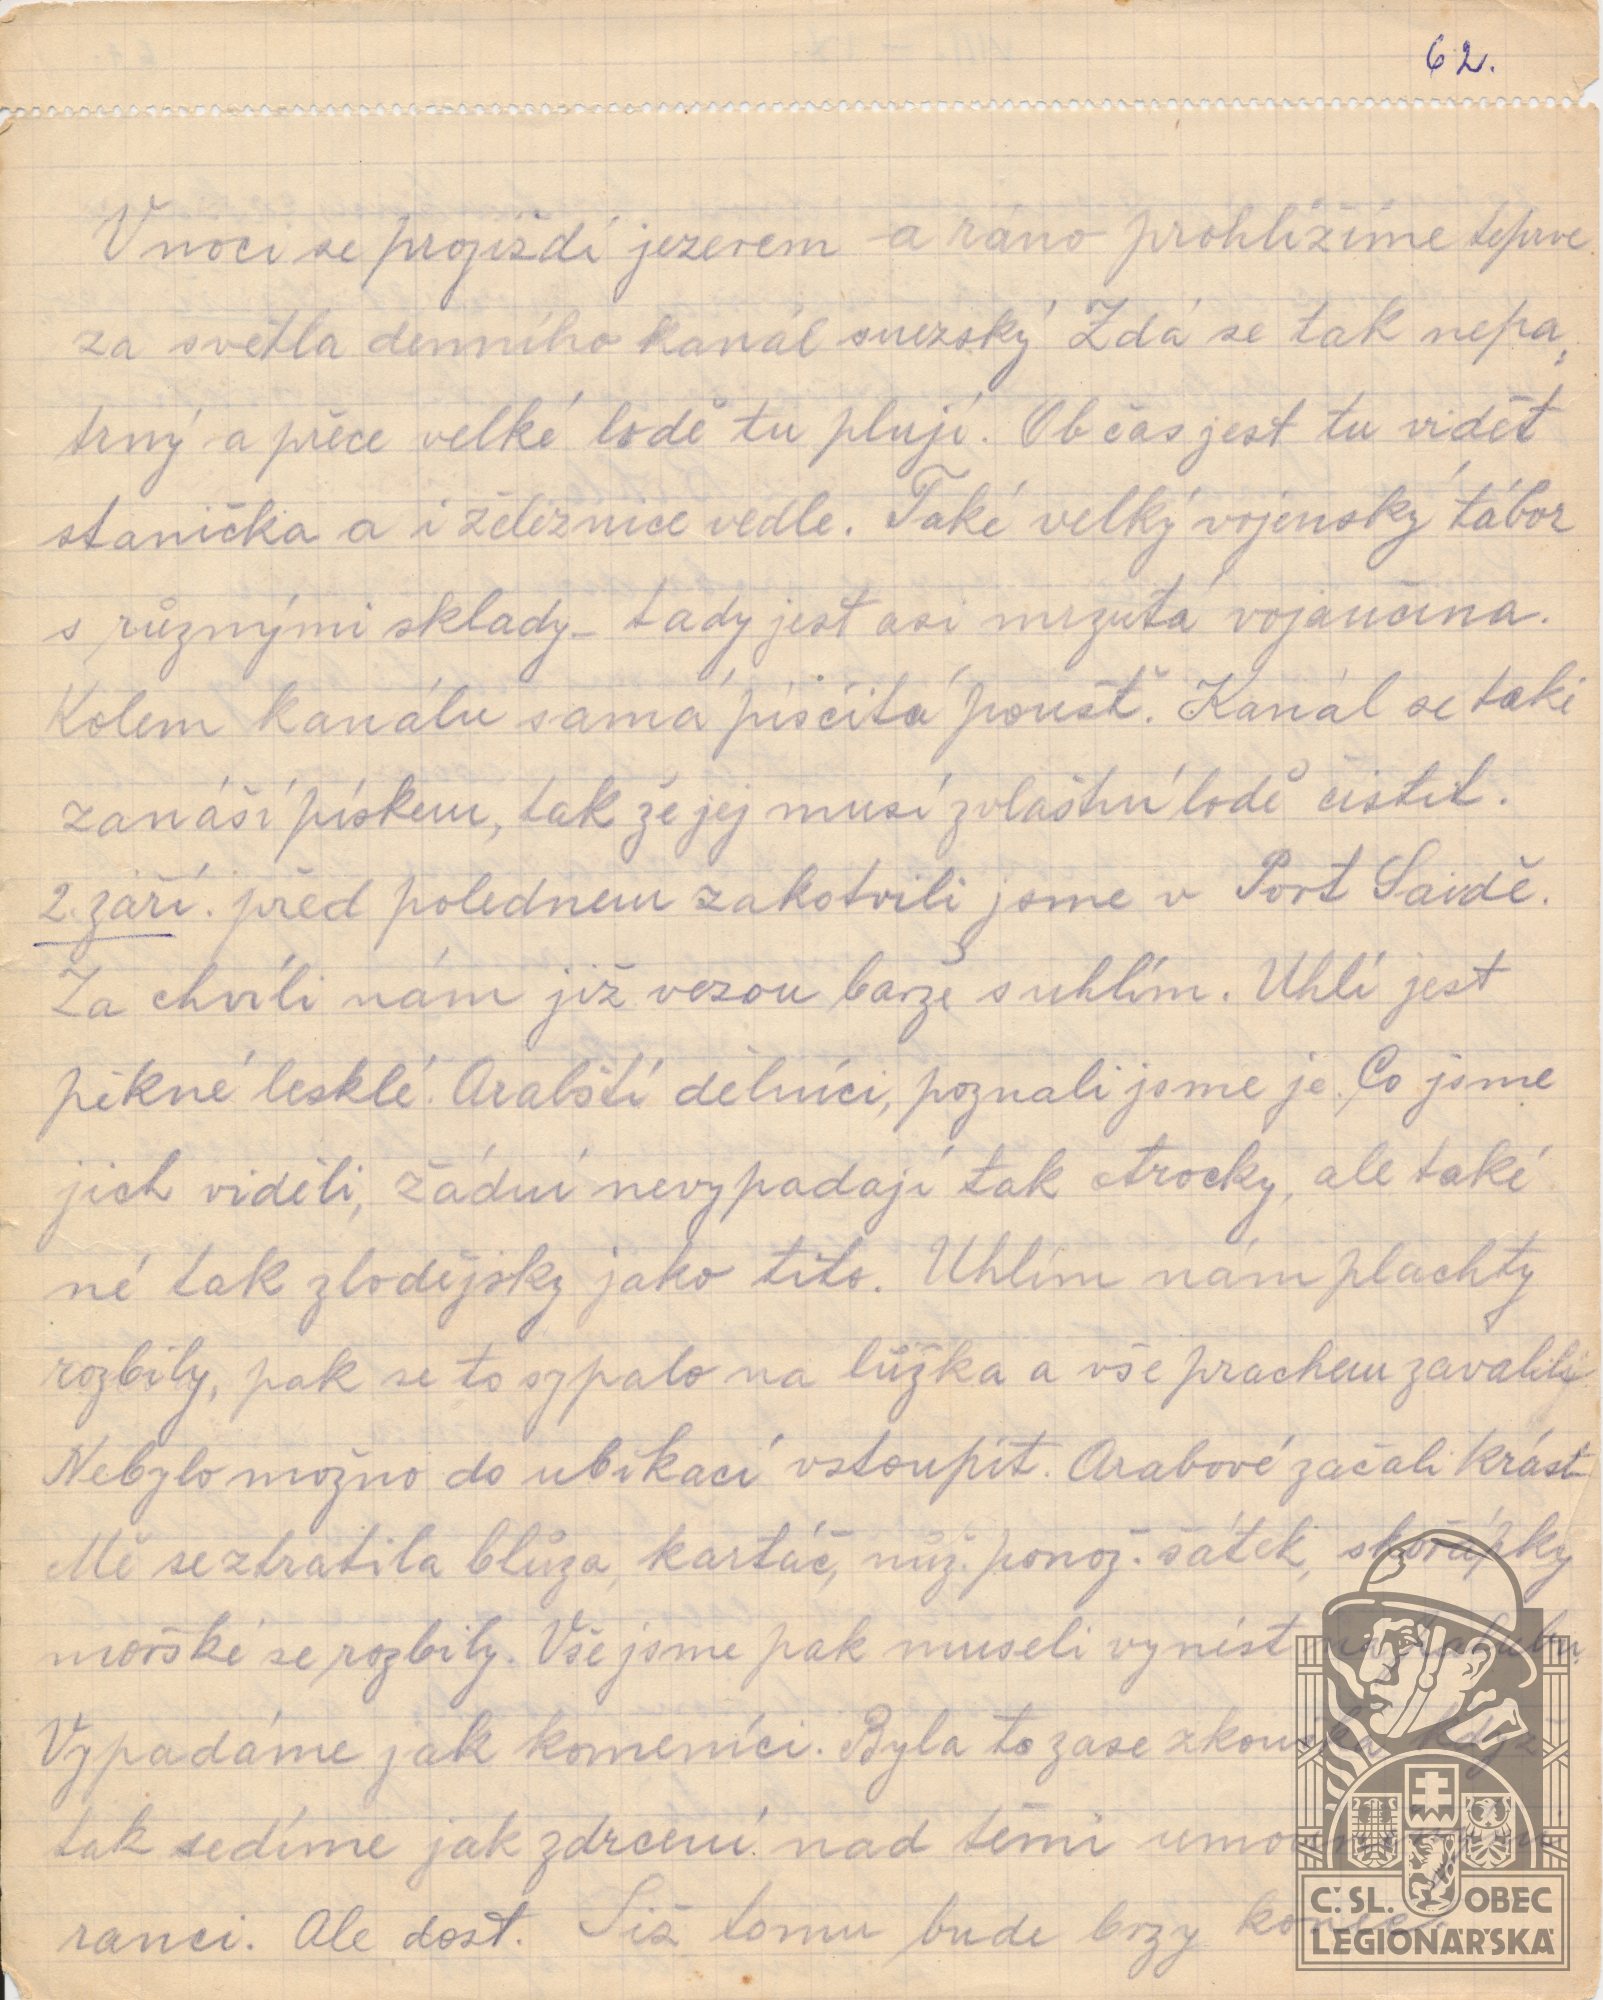 62.
V noci se projíždí jezerem a ráno prohlížíme teprve
za světla denního kanál suezský Zdá se tak nepa„
trný a přece velké lodě tu plují. Občas jest tu vidět
stanička a i železnice vedle. Také velký vojenský tábor
s různými sklady – tady jest asi mrzutá vojančina.
Kolem kanálu samá písčitá poušť. Kanál se také
zanáší pískem, tak že jej musí zvláštní lodě čistit.
2. září. před polednem zakotvili jsme v Port Saidě.
Za chvíli nám již vezou barže s uhlím. Uhlí jest
pěkné lesklé. Arabští dělníci, poznali jsme je. Co jsme
jich viděli, žádní nevypadají tak otrocky, ale také
né tak zlodějsky jako tito. Uhlím nám plachty
rozbily, pak se to sypalo na lůžka a vše prachem zavalily
Nebylo možno do ubikací vstoupit. Arabové začali krást
Mě se ztratila blůza, kartáč, nůž. ponož. šátek, skořápky
mořské se rozbily. Vše jsme pak museli vynést na
Vypadáme jak komeníci. Byla to zase zkouška když
tak sedíme jak zdrcení nad těmi
ranci. Ale dost. Již tomu bude brzy konec.
Č.SL. OBEC
LEGIONÁŘSKÁ